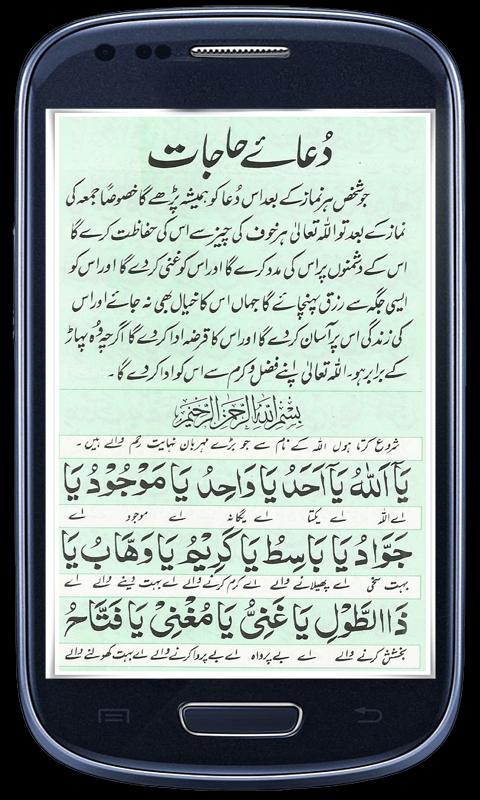 دُعائے حاجات
جو شخص ہر نماز کے بعد اس دُعا کو ہمیشہ پڑھے گا خصوصًا جمعہ کی
نماز کے بعد تو اللہ تعالیٰ ہر خوف کی چیز سے اس کی حفاظت کرے گا
اس کے دشمنوں پر اس کی مدد کرے گا اور اس کو غنی کر دے گا اور اس کو
ایسی جگہ سے رزق پہنچائے گا جہاں اس کا خیال بھی نہ جائے اور اس
کی زندگی اس پر آسان کر دے گا اور اس کا قرضہ ادا کر دے گا اگرچہ وُہ پہاڑ
کے برابر ہو۔ اللہ تعالیٰ اپنے فضل و کرم سے اس کو ادا کر دے گا۔
بِسْمِ اللّٰهِ الرَّحْمٰنِ الرَّحِيْمِ
شروع کرتا ہوں اللہ کے نام سے جو بڑے مہربان نہایت رحم والے ہیں ۔
يَآ اَللّٰهُ يَآ اَحَدُ يَا وَاحِدُ يَا مَوْجُوْدُ يَا
اے اللہ اے یکتا اے یگانہ اے موجود اے
جَوَّادُ يَا بَاسِطُ يَا كَرِيْمُ يَا وَهَّابُ يَا
بہت سخی اے پھیلانے والے اے کرم کرنے والے اے بہت دینے والے اے
ذَا الطَّوْلِ يَا غَنِىُّ يَا مُغْنِىْ يَا فَتَّاحُ
بخشش کرنے والے اے بے پرواہ اے بے پروا کرنے والے اے بہت کھولنے والے